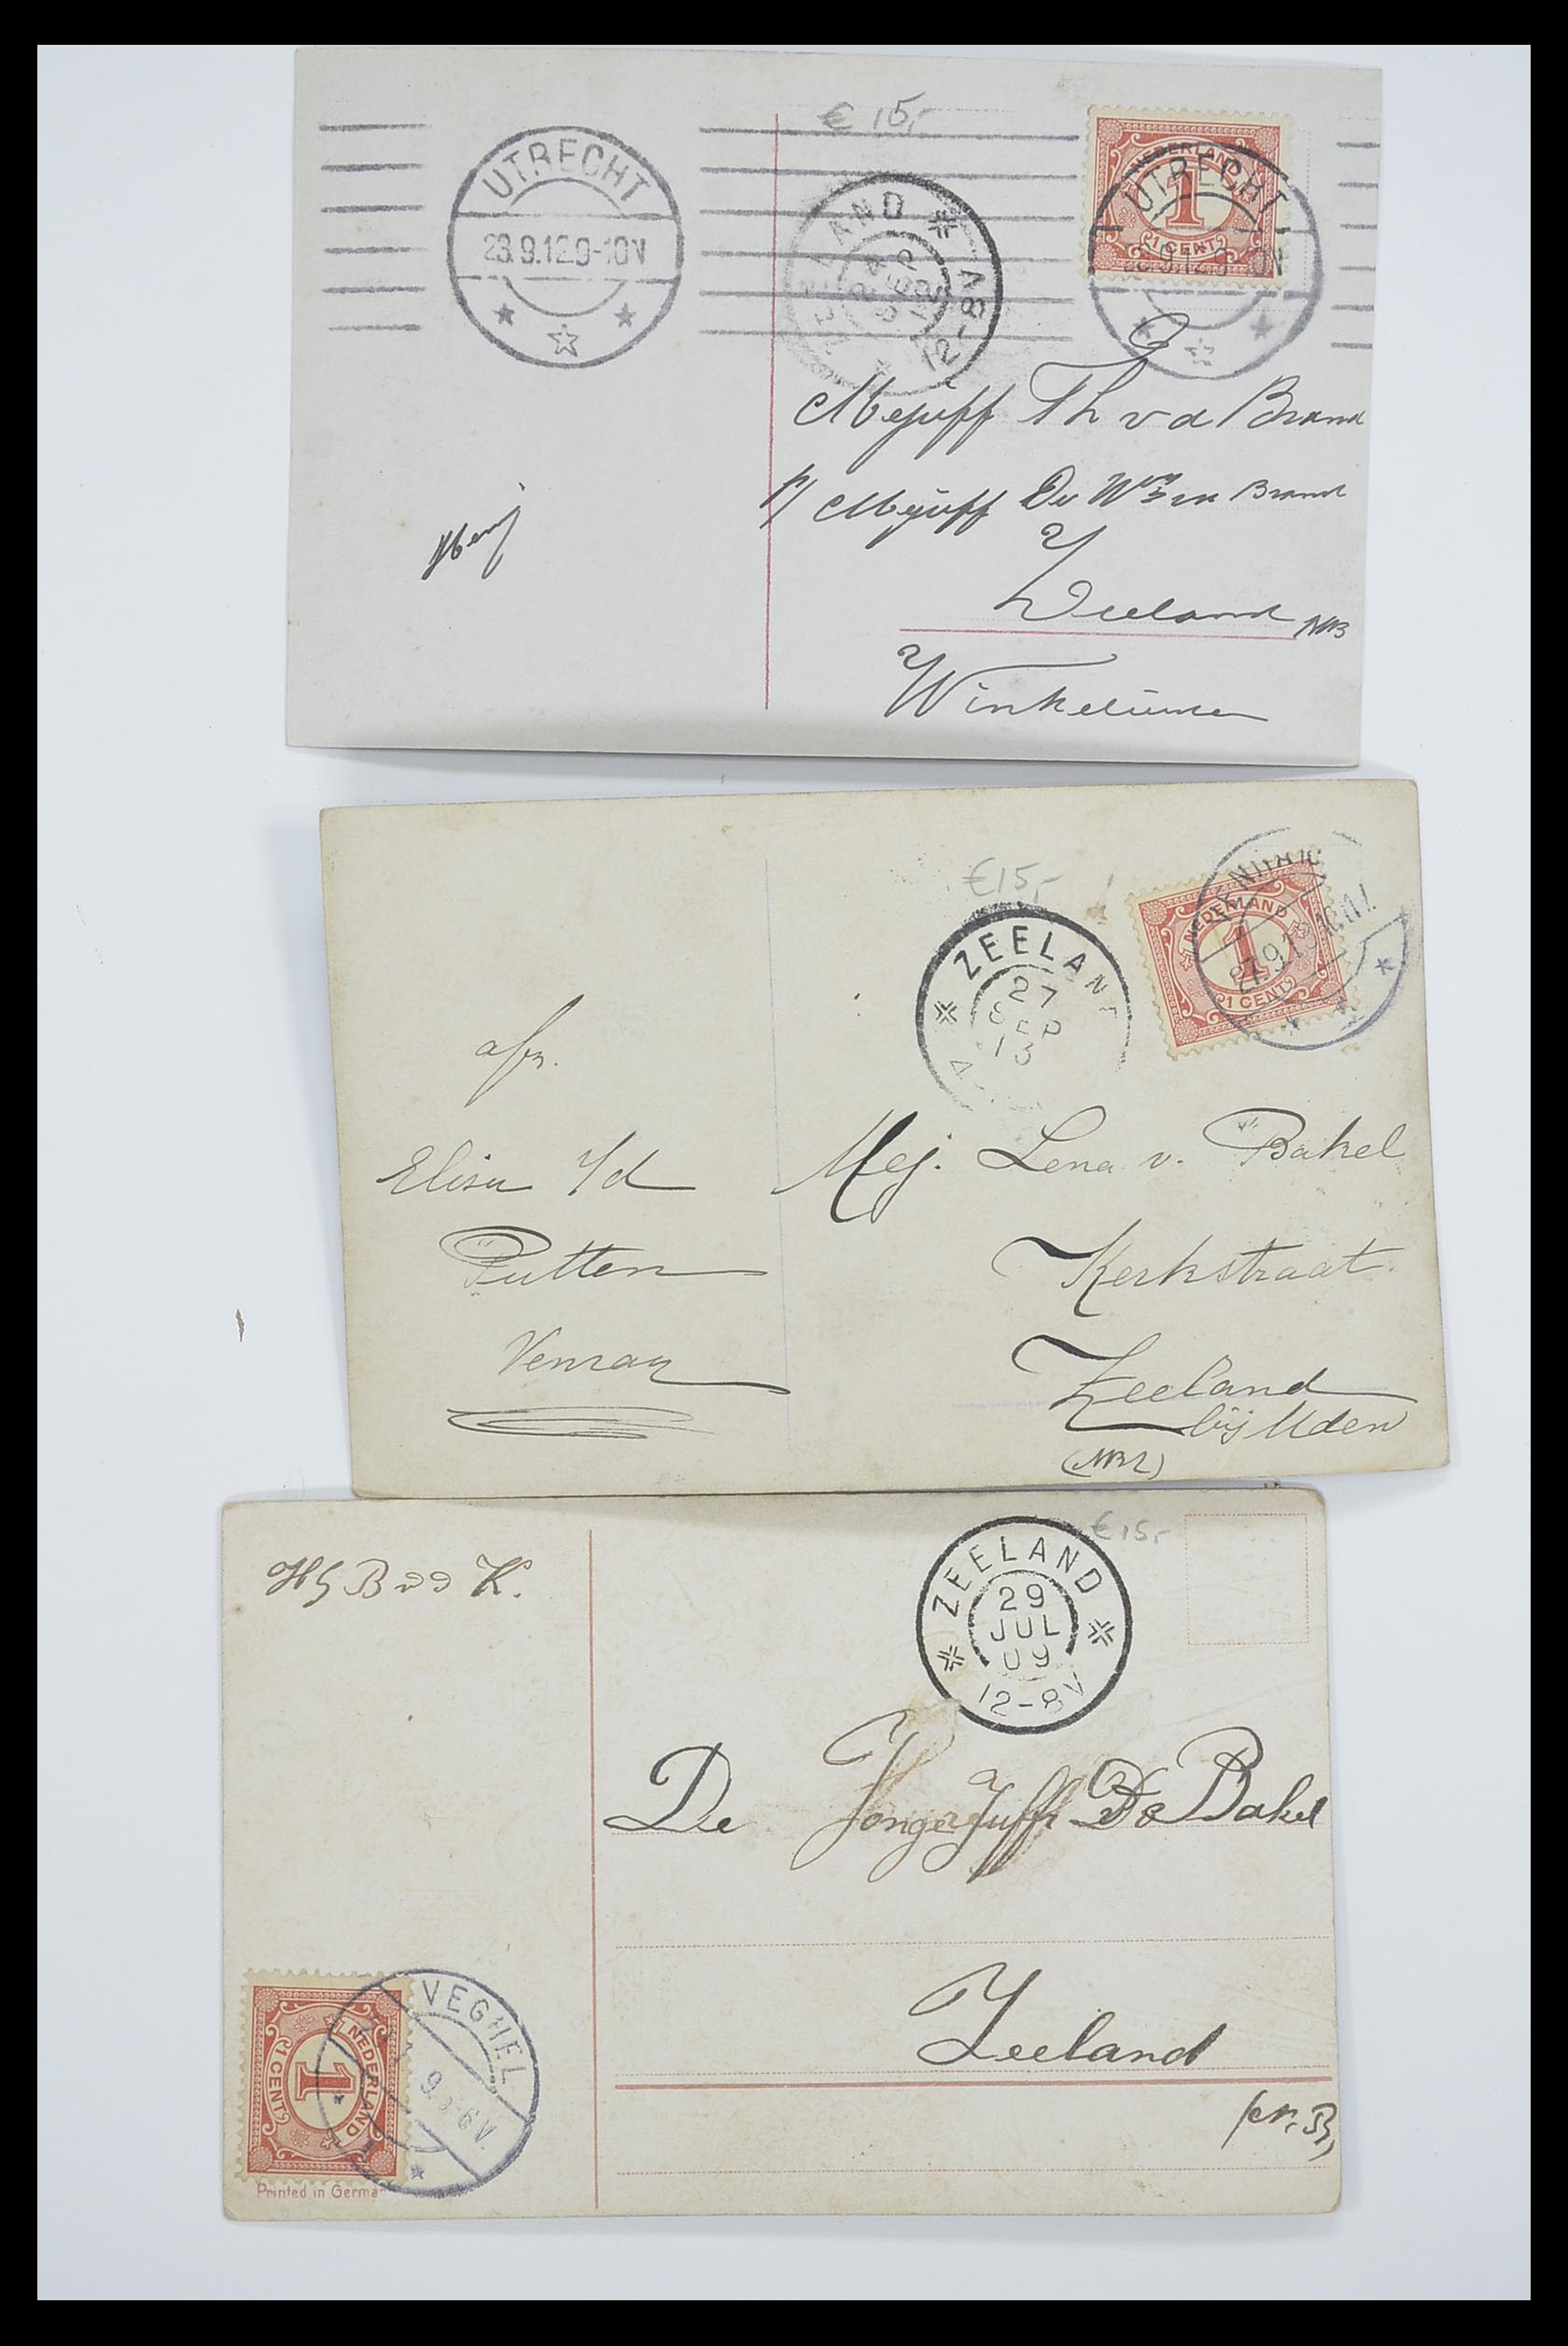 € 15,-
UTRECHT
23.9.12.9-10V
NEDERLAND
1
1 CENT
UTRECHT
ZEELAND
24
SEP
12
12-8V
Mejuff Th v d Brand
p/ Mejuff De W v d Brand
Zeeland NB
Winkelierster
€15,-
ZEELAND
27
SEP
13
NEDERLAND
1
1 CENT
afz.
Elisa v/d
Putten
Venray
Mej. Lena v. Bakel
Kerkstraat
Zeeland
bij Uden
(NBr)
€ 15,-
ZEELAND
29
JUL
09
12-8V
De Jonge Juffr Bakel
Zeeland
(N.B.)
NEDERLAND
1
1 CENT
VEGHEL
5-6V.
Printed in Germa